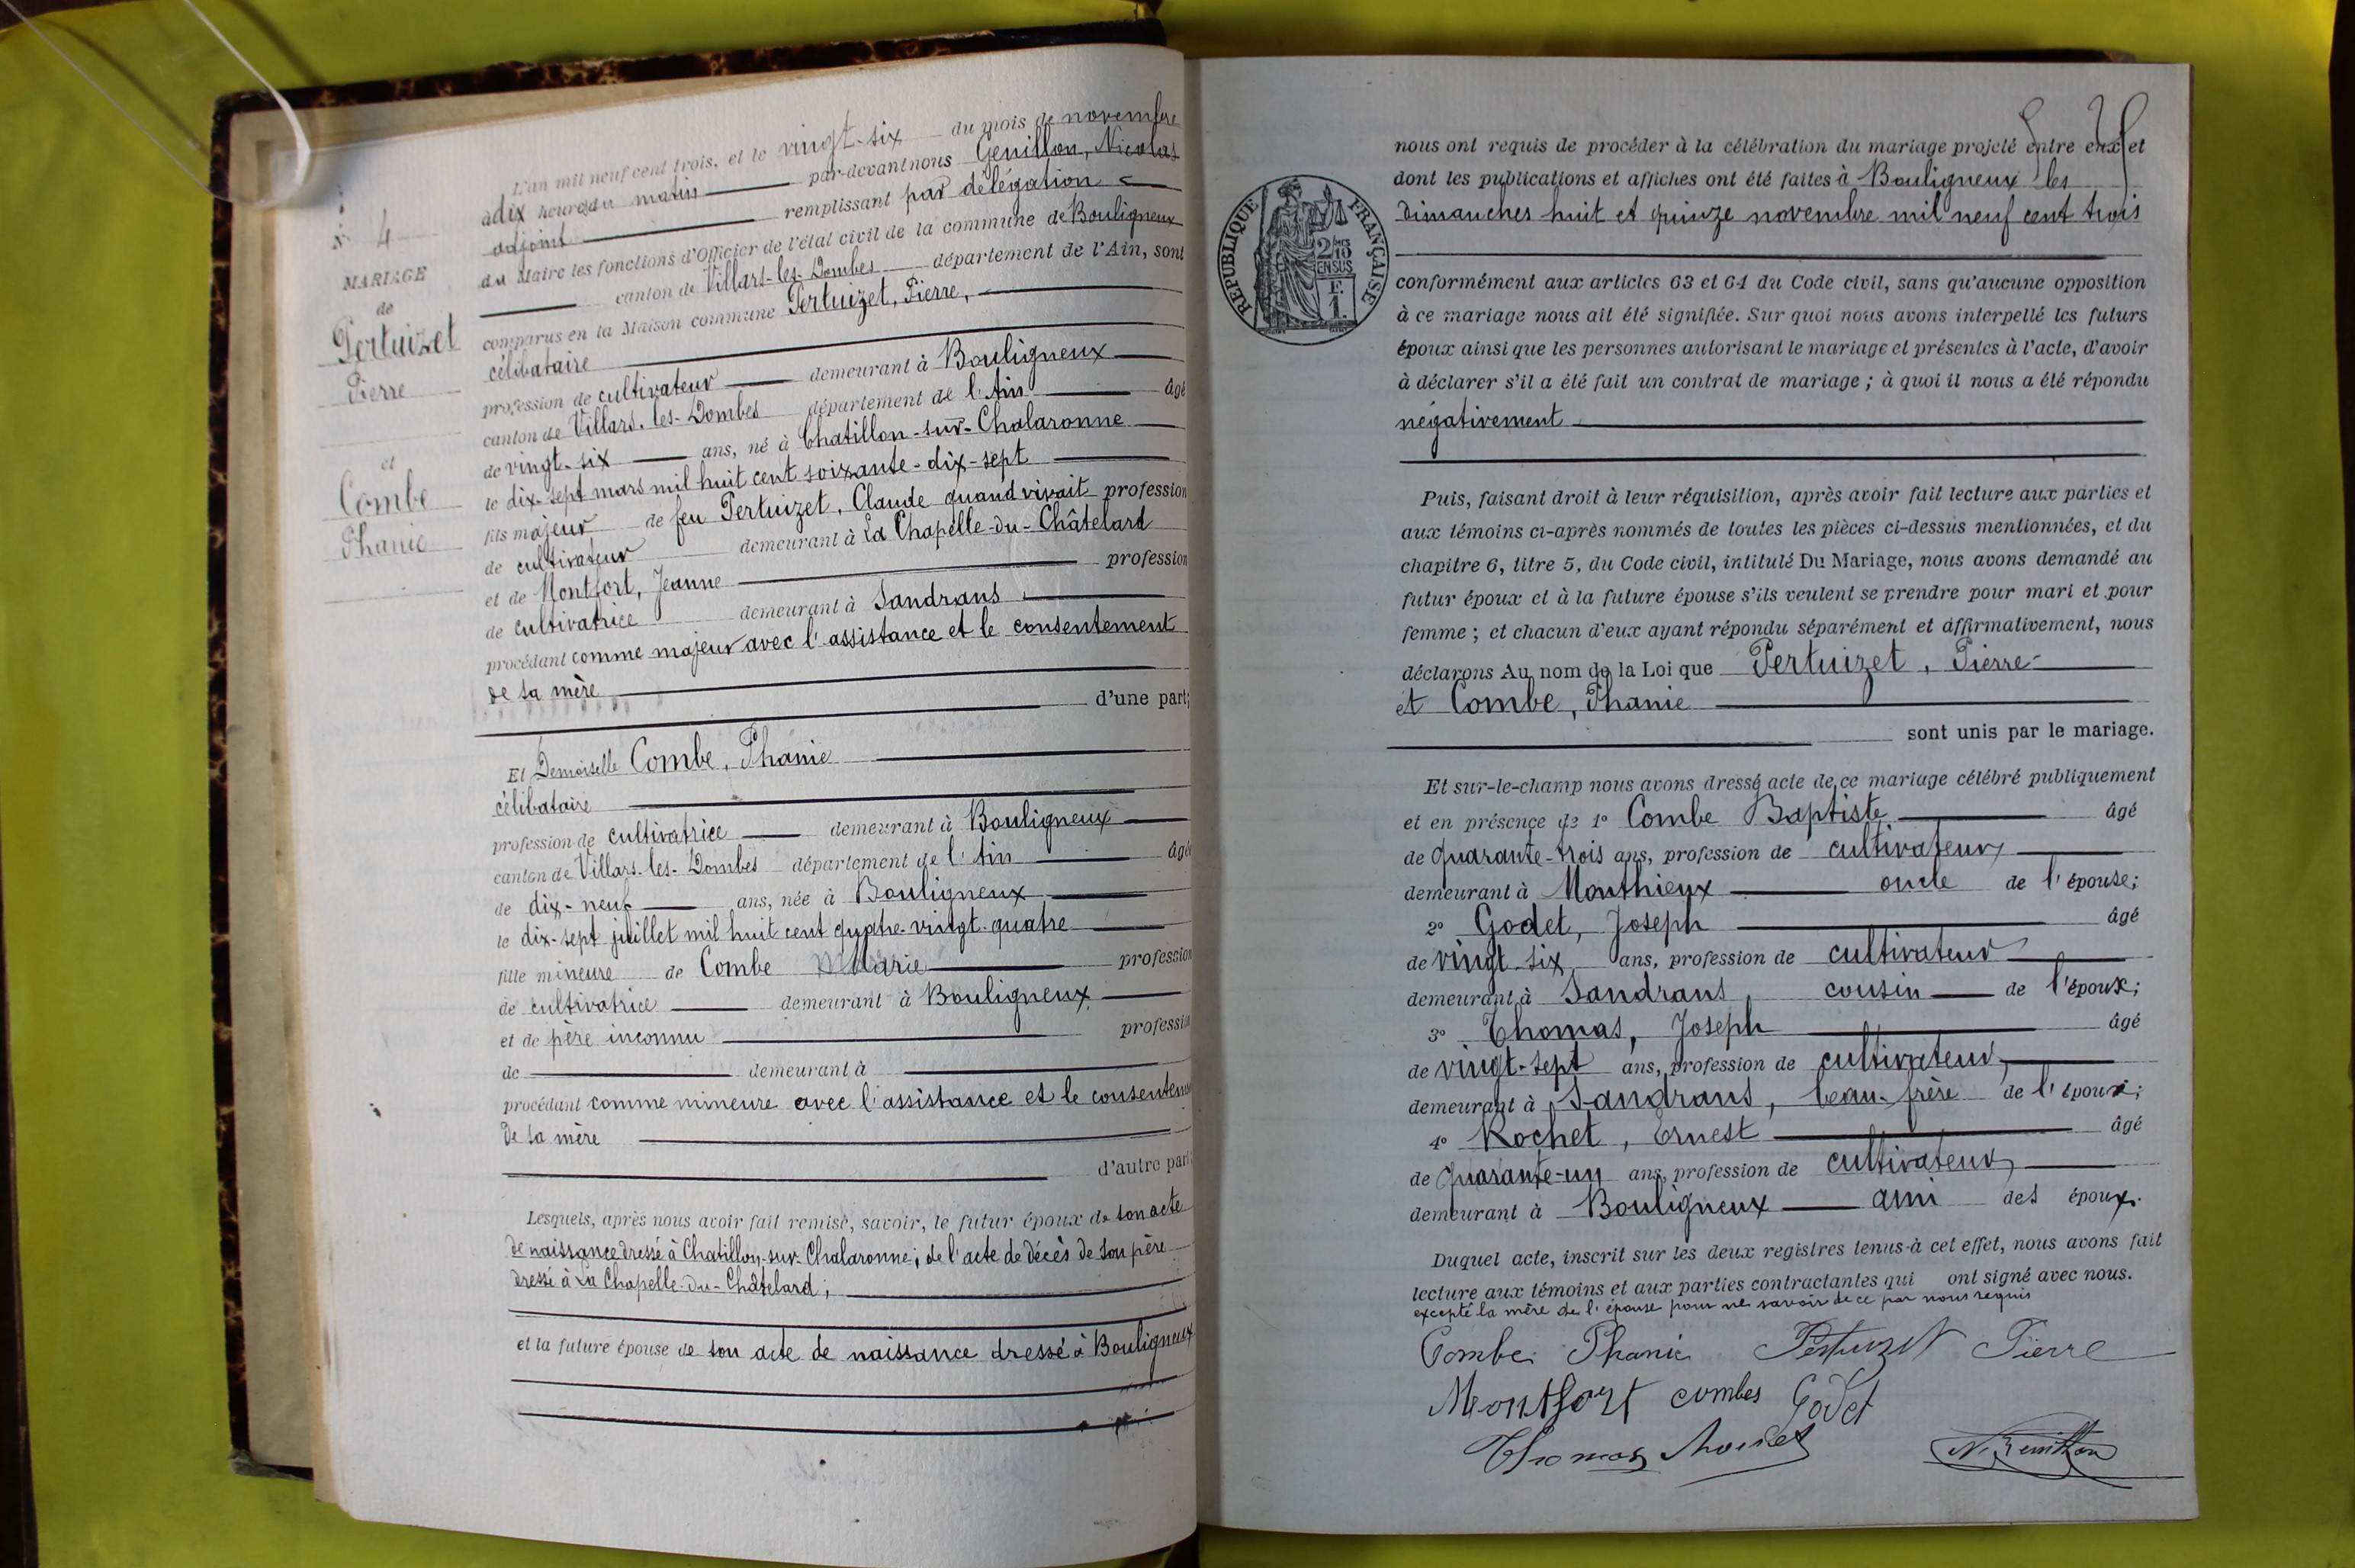 N° 4
MARIAGE
de
Pertuizet
Pierre
et
Combe
Phanie
L'an mil neuf cent trois, et le vingt-six du mois de novembre
à dix heures du matin par-devant nous Genillon, Nicolas
adjoint remplissant par délégation
du Maire les fonctions d'Officier de l'état civil de la commune de Bouligneux
canton de Villars-les-Dombes département de l'Ain, sont
comparus en la Maison commune Pertuizet, Pierre,
célibataire
profession de cultivateur demeurant à Bouligneux
canton de Villars-les-Dombes département de l'Ain âgé
de vingt-six ans, né à Chatillon-sur-Chalaronne
le dix-sept mars mil huit cent soixante-dix-sept
fils majeur de feu Pertuizet, Claude quand vivait profession
de cultivateur demeurant à La Chapelle-du-Châtelard
et de Montfort, Jeanne profession
de cultivatrice demeurant à Sandrans
procédant comme majeur avec l'assistance et le consentement
de sa mère
d'une part;
Et Demoiselle Combe, Phanie
célibataire
profession de cultivatrice demeurant à Bouligneux
canton de Villars-les-Dombes département de l'Ain âgée
de dix-neuf ans, née à Bouligneux
le dix-sept juillet mil huit cent quatre-vingt-quatre
fille mineure de Combe Marie profession
de cultivatrice demeurant à Bouligneux
et de père inconnu profession
de demeurant à
procédant comme mineure avec l'assistance et le consentem
de sa mère
d'autre part
Lesquels, après nous avoir fait remise, savoir, le futur époux de son acte
de naissance dressé à Chatillon-sur-Chalaronne; de l'acte de décès de son père
dressé à La Chapelle-du-Châtelard;
et la future épouse de son acte de naissance dressé à Bouligneux
RÉPUBLIQUE FRANÇAISE
2/10 EN SUS
F. 1.
nous ont requis de procéder à la célébration du mariage projeté entre eux et
dont les publications et affiches ont été faites à Bouligneux les
dimanches huit et quinze novembre mil neuf cent trois
conformément aux articles 63 et 64 du Code civil, sans qu'aucune opposition
à ce mariage nous ait été signifiée. Sur quoi nous avons interpellé les futurs
époux ainsi que les personnes autorisant le mariage et présentes à l'acte, d'avoir
à déclarer s'il a été fait un contrat de mariage; à quoi il nous a été répondu
négativement
Puis, faisant droit à leur réquisition, après avoir fait lecture aux parties et
aux témoins ci-après nommés de toutes les pièces ci-dessus mentionnées, et du
chapitre 6, titre 5, du Code civil, intitulé Du Mariage, nous avons demandé au
futur époux et à la future épouse s'ils veulent se prendre pour mari et pour
femme; et chacun d'eux ayant répondu séparément et affirmativement, nous
déclarons Au nom de la Loi que Pertuizet, Pierre
et Combe, Phanie
sont unis par le mariage.
Et sur-le-champ nous avons dressé acte de ce mariage célébré publiquement
et en présence de 1° Combe Baptiste âgé
de quarante-trois ans, profession de cultivateur
demeurant à Monthieux oncle de l'épouse;
2° Godet, Joseph âgé
de vingt-six ans, profession de cultivateur
demeurant à Sandrans, cousin de l'époux;
3° Thomas, Joseph âgé
de vingt-sept ans, profession de cultivateur
demeurant à Sandrans, beau-frère de l'époux;
4° Rochet, Ernest âgé
de quarante-un ans, profession de cultivateur
demeurant à Bouligneux ami des époux.
Duquel acte, inscrit sur les deux registres tenus à cet effet, nous avons fait
lecture aux témoins et aux parties contractantes qui ont signé avec nous.
excepté la mère de l'épouse pour ne savoir de ce par nous requis
Combe Phanie Pertuizet Pierre
Montfort combes Godet
Thomas Rochet N. Genillon